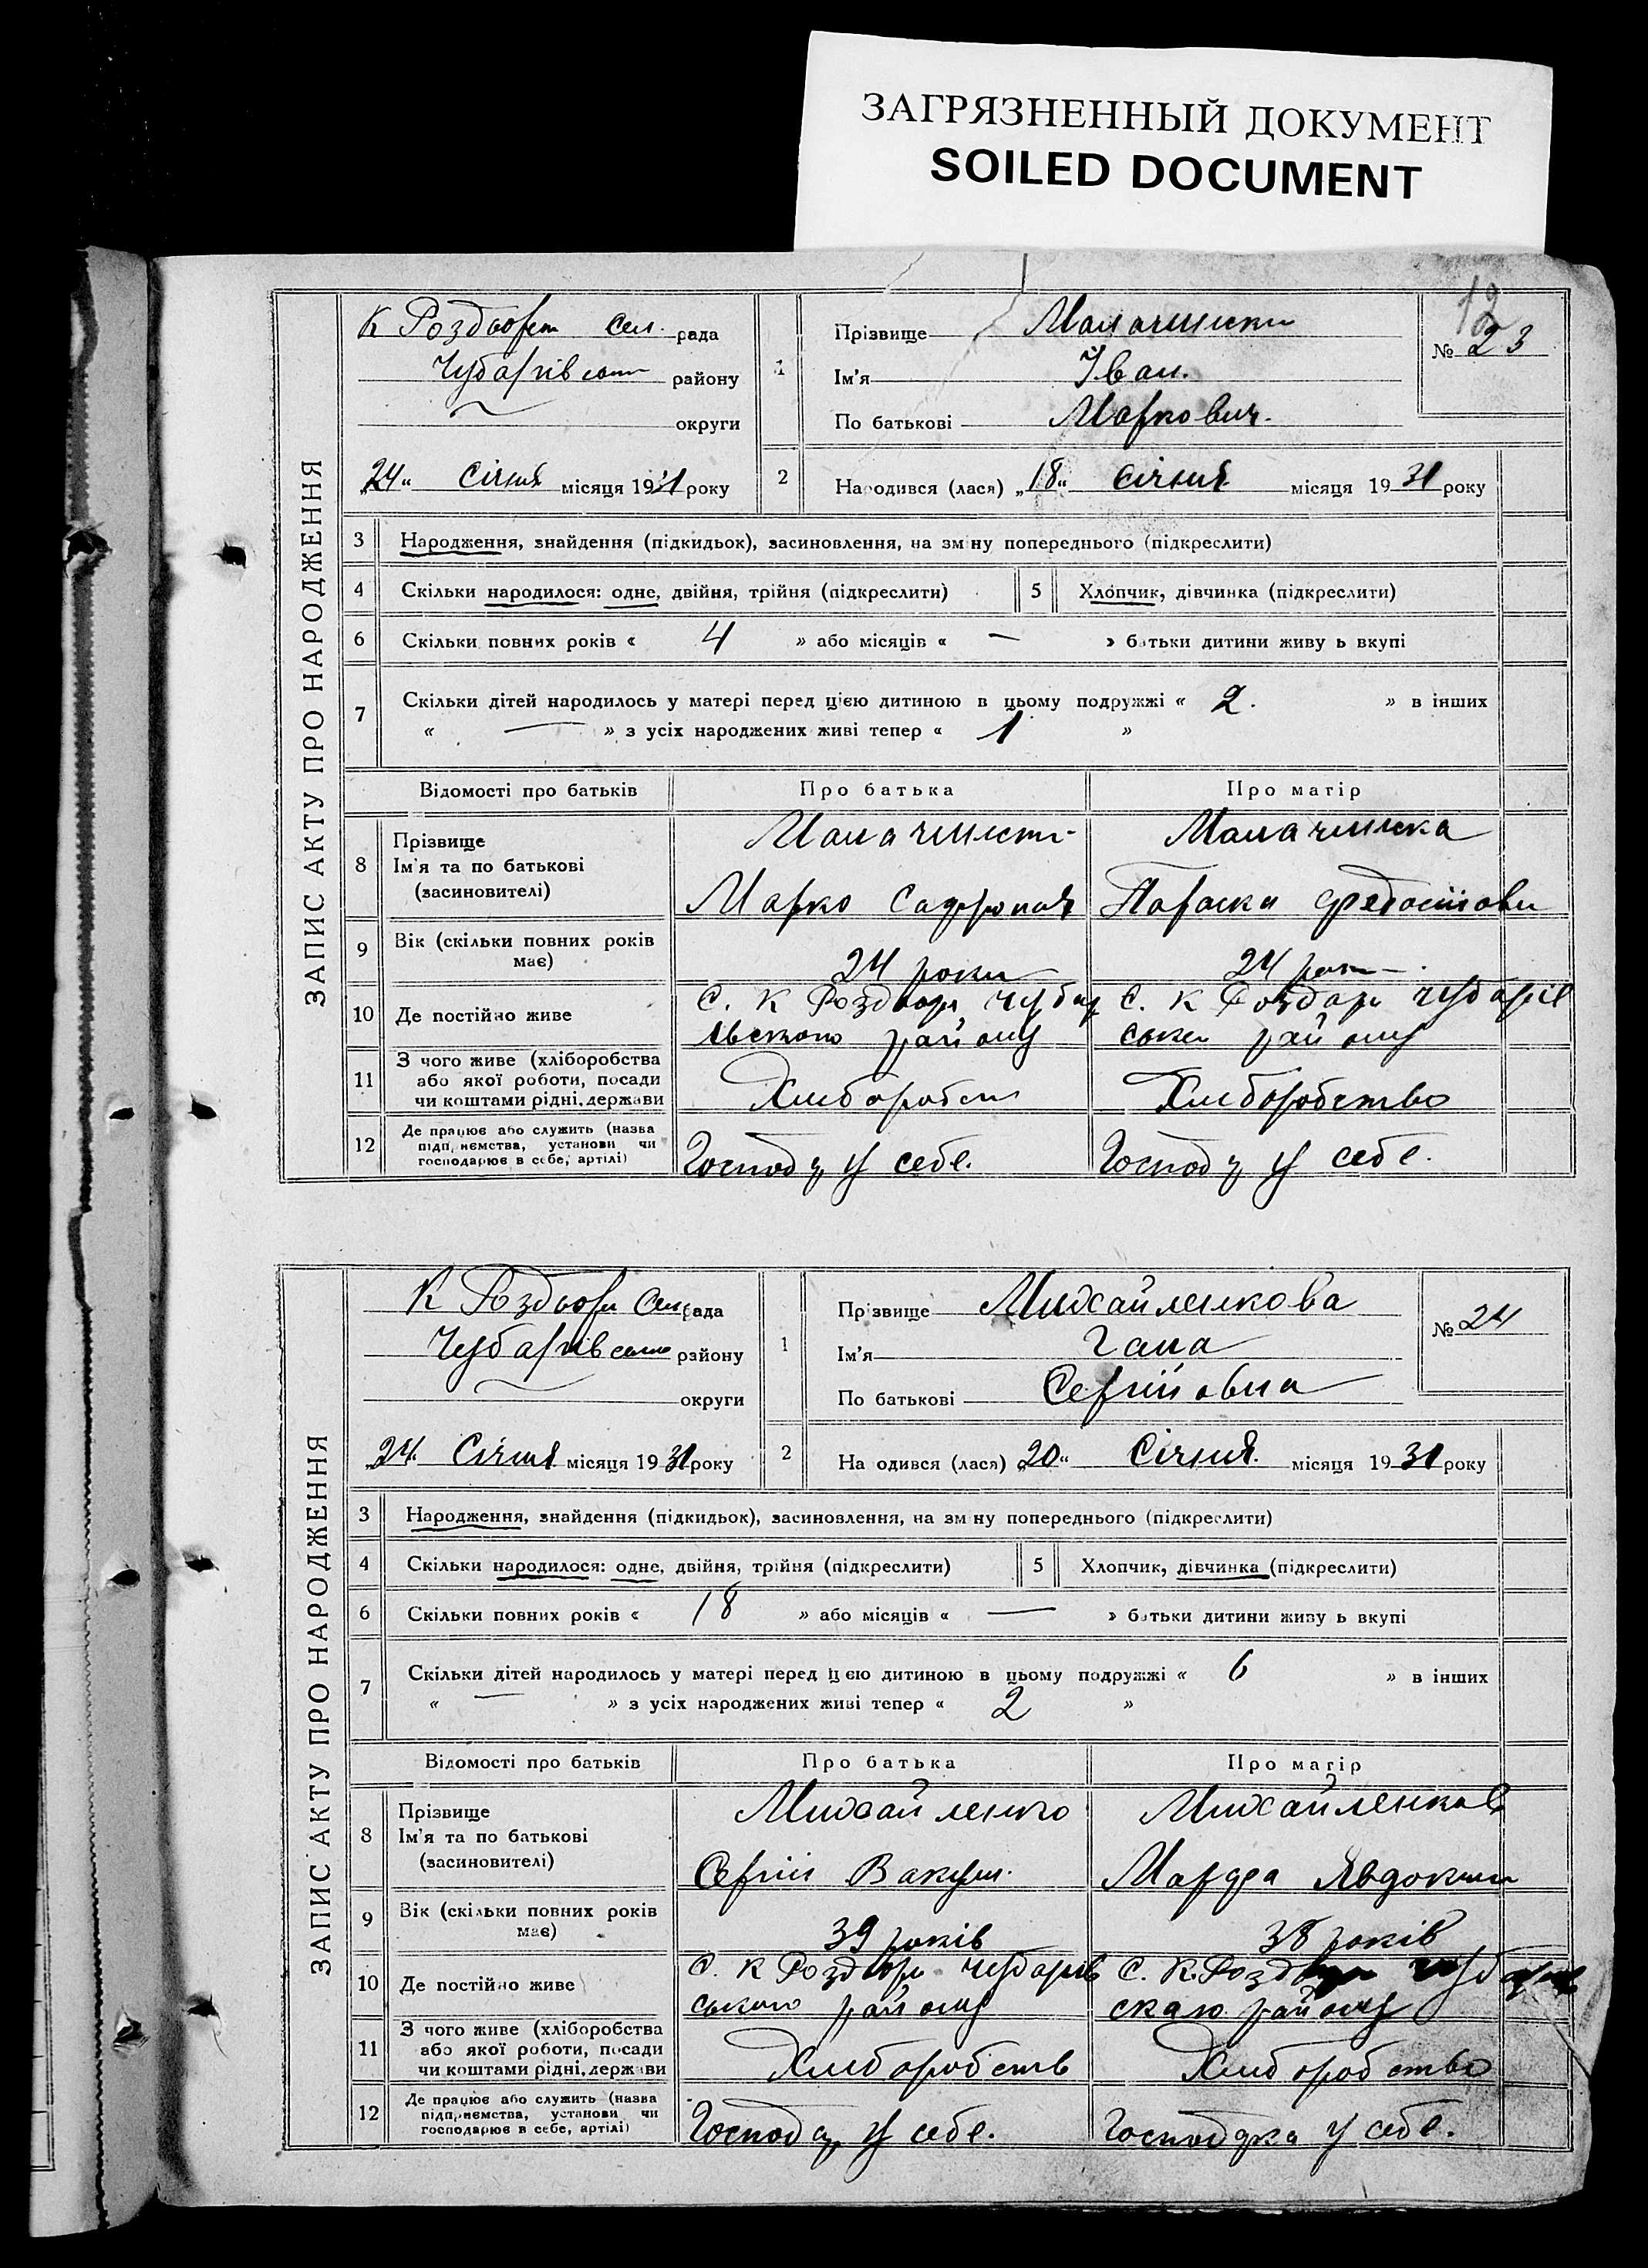 ЗАГРЯЗНЕННЫЙ ДОКУМЕНТ
SOILED DOCUMENT
12
ЗАПИС АКТУ ПРО НАРОДЖЕННЯ
К Роздори сел. рада
Чубарівськ району
округи
„24“ Січня місяця 1931 року
1
Прізвище
Ім'я Іван.
По батькові Маркович.
№ 23
2 Народився (лася) „18“ Січня місяця 1931 року
3 Народження, знайдення (підкидьок), засиновлення, на зміну попереднього (підкреслити)
4 Скільки народилося: одне, двійня, трійня (підкреслити)
5 Хлопчик, дівчинка (підкреслити)
6 Скільки повних років « 4 » або місяців « — » батьки дитини живуть вкупі
7 Скільки дітей народилось у матері перед цією дитиною в цьому подружжі « 2. » в інших
« — » з усіх народжених живі тепер « 1 »
Відомості про батьків Про батька Про матір
8 Прізвище
Ім'я та по батькові
(засновителі)
Марко Сафронов
Параска
9 Вік (скільки повних років має)
24 роки
24 роки
10 Де постійно живе
С. К Роздори Чубар
івського району
С. К Роздори Чубарів
ськ району
11 З чого живе (хліборобства
або якої роботи, посади
чи коштами рідні, держави
Хліборобств
Хліборобство
12 Де працює або служить (назва
підприємства, установи чи
господарює в себе, артілі)
Господ у себе.
Господ у себе.
ЗАПИС АКТУ ПРО НАРОДЖЕННЯ
К Роздори Сел рада
Чубарівськ району
округи
„24“ Січня місяця 1931 року
1
Прізвище Михайленкова
Ім'я Гана
По батькові Сергійовна
№ 24
2 Народився (лася) „20“ Січня місяця 1931 року
3 Народження, знайдення (підкидьок), засиновлення, на зміну попереднього (підкреслити)
4 Скільки народилося: одне, двійня, трійня (підкреслити)
5 Хлопчик, дівчинка (підкреслити)
6 Скільки повних років « 18 » або місяців « — » батьки дитини живуть вкупі
7 Скільки дітей народилось у матері перед цією дитиною в цьому подружжі « 6 » в інших
« — » з усіх народжених живі тепер « 2 »
Відомості про батьків Про батька Про матір
8 Прізвище
Ім'я та по батькові
(засиновителі)
Михайленко
Сергій Вакул.
Михайленков
Марфа Явдоким
9 Вік (скільки повних років має)
39 років
38 років
10 Де постійно живе
С. К Роздори Чубарів
ського району
С. К Роздори
ского району
11 З чого живе (хліборобства
або якої роботи, посади
чи коштами рідні, держави
Хліборобств
Хліборобство
12 Де працює або служить (назва
підприємства, установи чи
господарює в себе, артілі)
Господ у себе.
Господарка у себе.